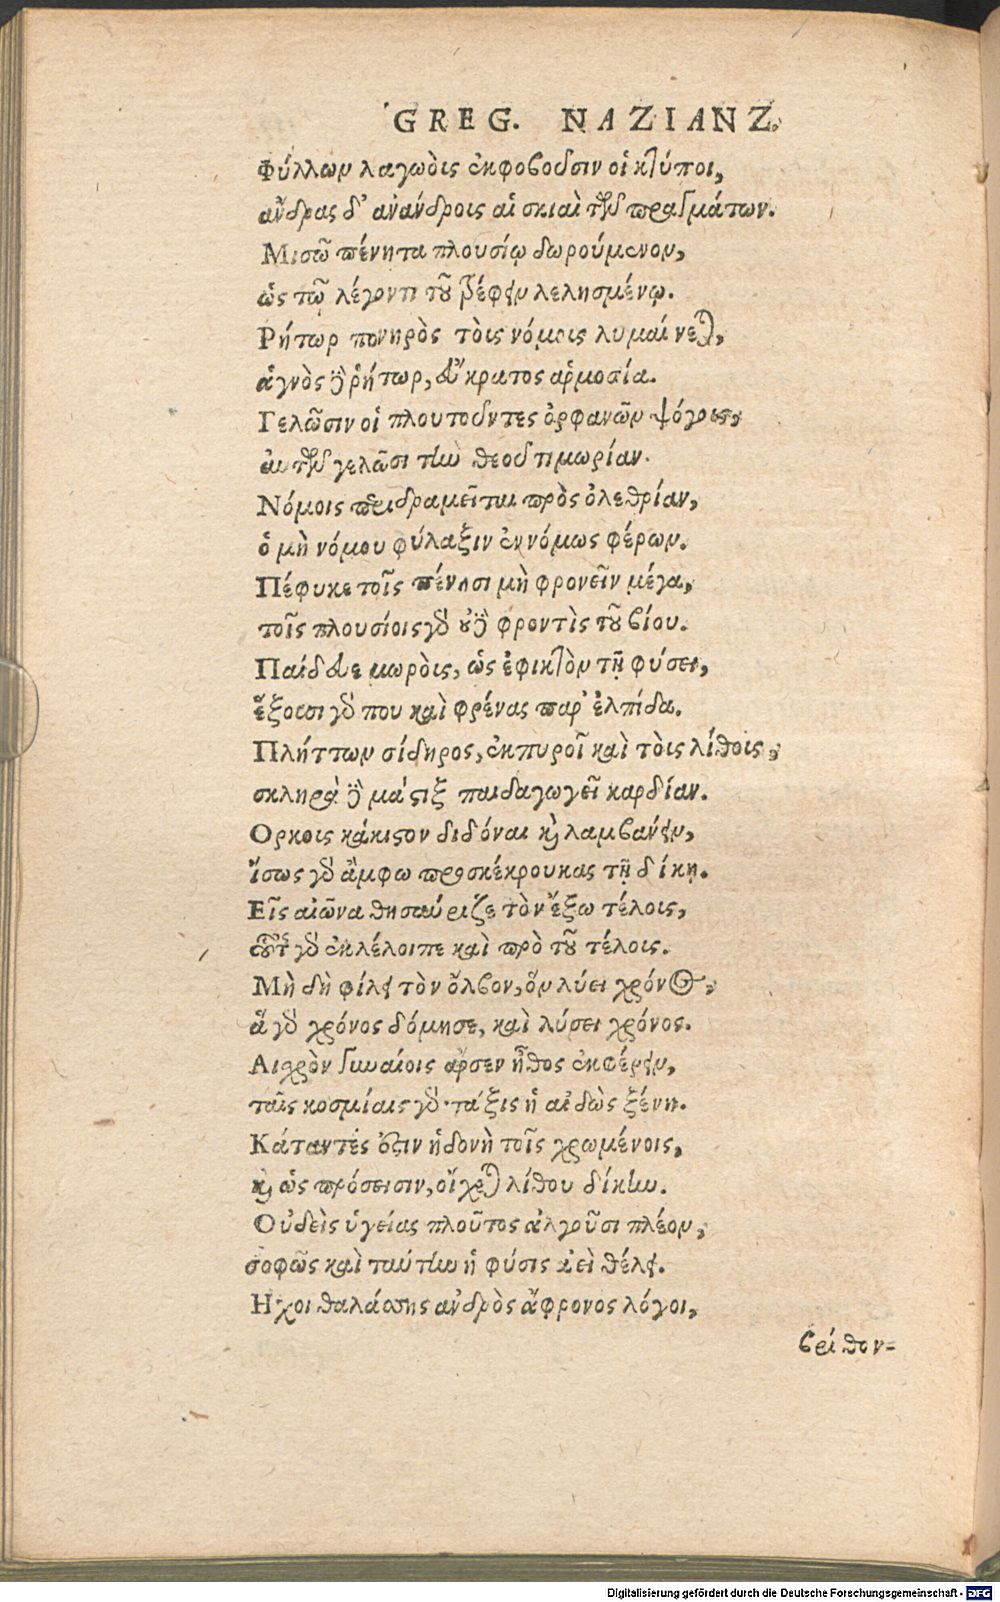 GREG. NAZIANZ.
Φύλλων λαγωὸις ἐκφοβοῦσιν οἱ κτύποι,
ἄνδρας δ' ἀνάνδροις αἱ σκιαὶ τῶν πραγμάτων.
Μισῶ πένητα πλουσίῳ δωρούμενον,
ὡς τῷ λέγοντι τοῦ τρέφειν λελησμένῳ.
Ρήτωρ πονηρὸς τὸις νόμοις λυμαίνεται,
ἁγνὸς δὲ ῥήτωρ, εὔκρατος ἁρμοσία.
Γελῶσιν οἱ πλουτοῦντες ὀρφανῶν ψόγοις,
ἐν τῶν γελῶσι τὴν θεοῦ τιμωρίαν.
Νόμοις περιδραμεῖται πρὸς ὀλεθρίαν,
ὁ μὴ νόμου φύλαξιν ἐννόμως φέρων.
Πέφυκε τοῖς πένησι μὴ φρονεῖν μέγα,
τοῖς πλουσίοις γὰρ οὐδὲ φροντὶς τοῦ βίου.
Παίδευε μωρὸις, ὡς ἐφικτὸν τῇ φύσει,
ἕξουσι γάρ που καὶ φρένας παρ' ἐλπίδα.
Πλήττων σίδηρος, ἐκπυροῖ καὶ τὸις λίθοις,
σκληρὰν δὲ μάστιξ παιδαγωγεῖ καρδίαν.
Ορκοις κάκιστον διδόναι καὶ λαμβάνειν,
ἴσως γὰρ ἄμφω προσκέκρουκας τῇ δίκῃ.
Εἰς αἰῶνα θησαύριζε τὸν ἔξω τέλοις,
οὗτος γὰρ ἐκλέλοιπε καὶ πρὸ τοῦ τέλοις.
Μὴ δὴ φίλει τὸν ὄλβον, ὃν λύει χρόνος,
ἃ γὰρ χρόνος δόμησε, καὶ λύσει χρόνος.
Αιχρὸν γυναίοις ἄρσεν ἦθος ἐκφέρειν,
ταῖς κοσμίαις γὰρ τάξις ἡ αἰδὼς ξένη.
Κάταντές ἐστιν ἡδονὴ τοῖς χρωμένοις,
καὶ ὡς πρόσεισιν, οἴχεται λίθου δίκην.
Οὐδεὶς ὑγείας πλοῦτος ἀλγοῦσι πλέον,
σοφῶς καὶ ταύτην ἡ φύσις ἀεὶ θέλει.
Ηχοι θαλάσσης ἀνδρὸς ἄφρονος λόγοι,
βρίθον-
Digitalisierung gefördert durch die Deutsche Forschungsgemeinschaft - DFG